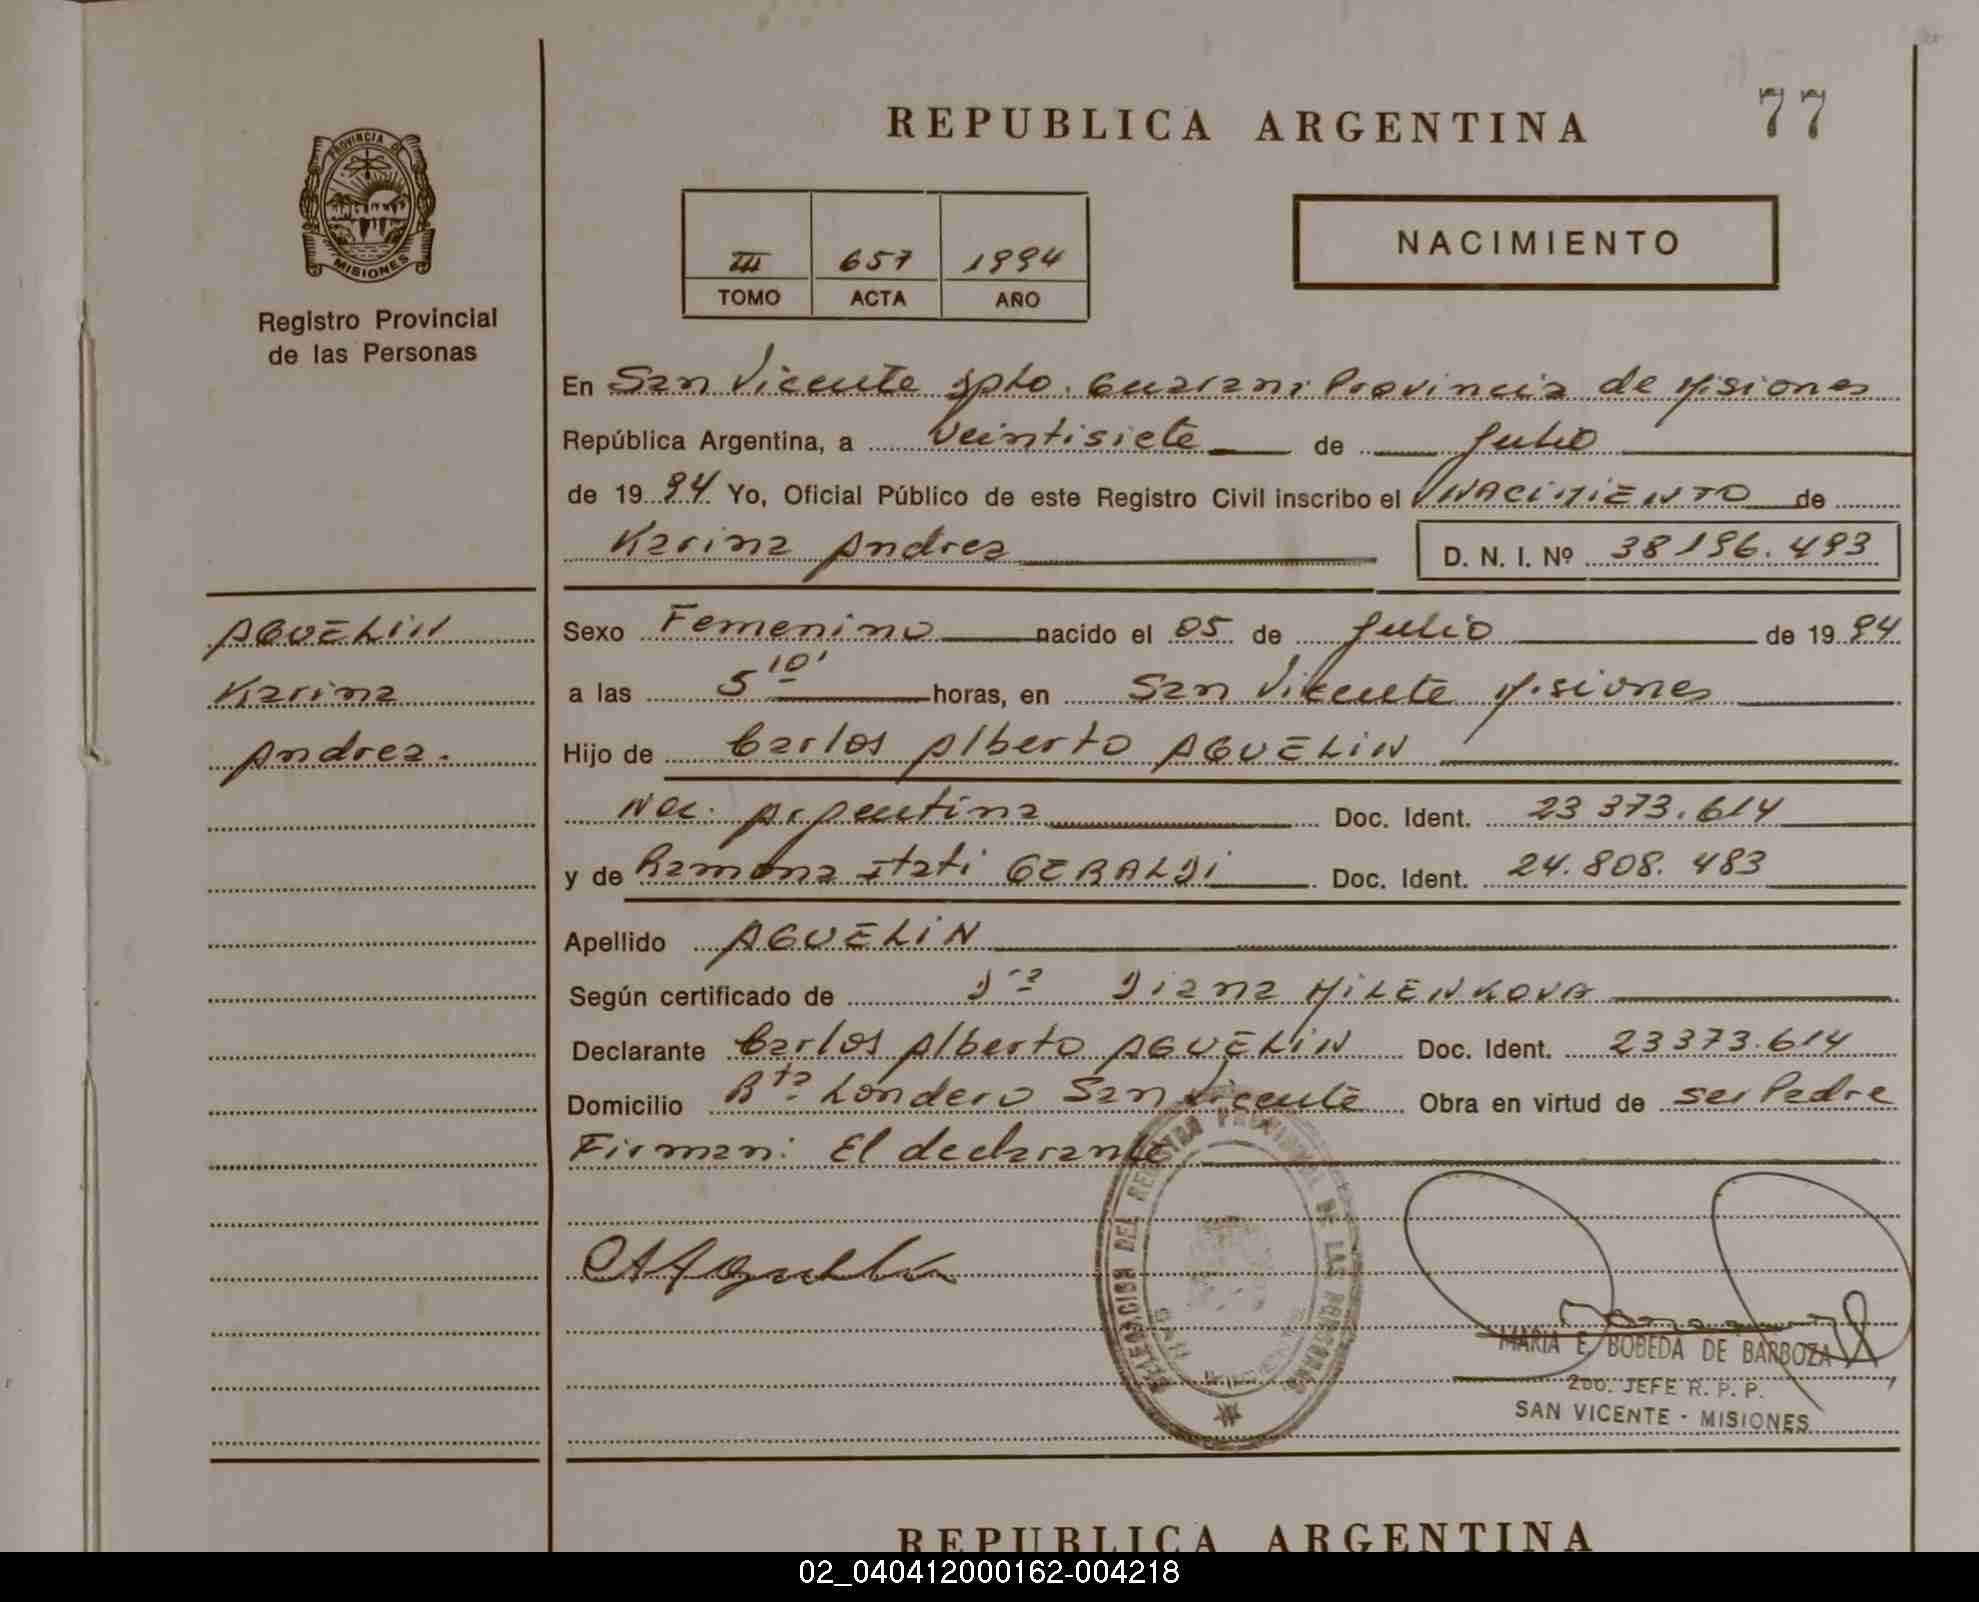 77
REPUBLICA ARGENTINA
PROVINCIA DE
MISIONES
Registro Provincial
de las Personas
III 657 1994
TOMO ACTA AÑO
NACIMIENTO
En San Vicente Dpto. Guarani Provincia de Misiones
República Argentina, a Veintisiete de Julio
de 1994 Yo, Oficial Público de este Registro Civil inscribo el NACIMIENTO de
Karina Andrea D. N. I. Nº 38196.493
AGUELIN
Karina
Andrea.
Sexo Femenino nacido el 05 de Julio de 1994
a las 5 10' horas, en San Vicente Misiones
Hijo de Carlos Alberto AGUELIN
Nac. Argentina Doc. Ident. 23 373.614
y de Ramona Itati GERALDI Doc. Ident. 24.808.483
Apellido AGUELIN
Según certificado de Dra Diana MILENKOVA
Declarante Carlos Alberto AGUELIN Doc. Ident. 23373.614
Domicilio Bta Londero San Vicente Obra en virtud de ser Padre
Firman: El declarante
DELEGACION DEL REGISTRO PROVINCIAL DE LAS PERSONAS
SAN VICENTE
MARIA E. BOBEDA DE BARBOZA
2DO. JEFE R. P. P.
SAN VICENTE - MISIONES
REPUBLICA ARGENTINA
02_040412000162-004218